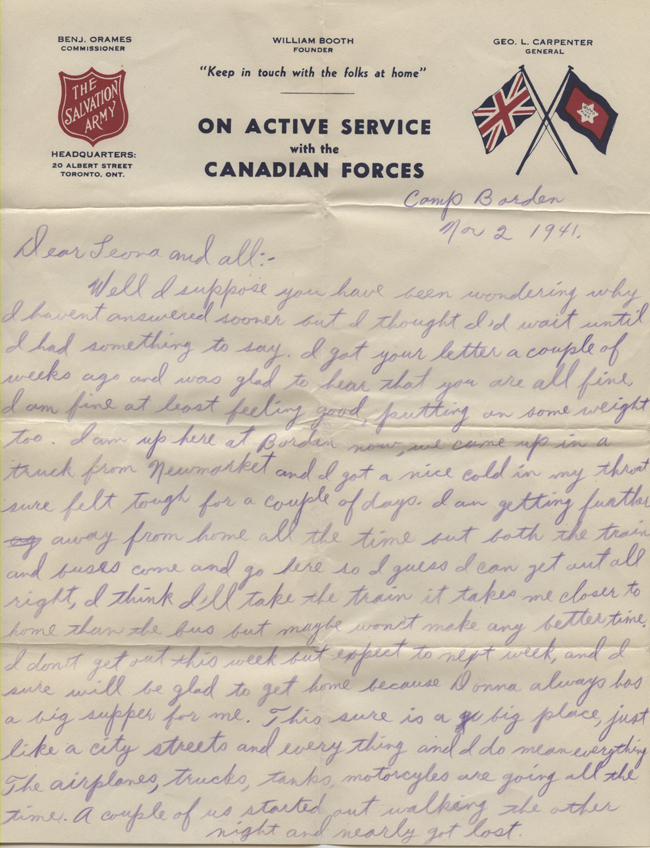 BENJ. ORAMES
COMMISSIONER
THE
SALVATION
ARMY
HEADQUARTERS:
20 ALBERT STREET
TORONTO, ONT.
WILLIAM BOOTH
FOUNDER
"Keep in touch with the folks at home"
ON ACTIVE SERVICE
with the
CANADIAN FORCES
GEO. L. CARPENTER
GENERAL
Camp Borden
Nov 2 1941.
Dear Leona and all:-
Well I suppose you have been wondering why
I havent answered sooner but I thought I'd wait until
I had something to say. I got your letter a couple of
weeks ago and was glad to hear that you are all fine
I am fine at least feeling good, putting on some weight
too. I am up here at Borden now, we came up in a
truck from Newmarket and I got a nice cold in my throat
sure felt tough for a couple of days. I am getting further
away from home all the time but both the train
and buses come and go here so I guess I can get out all
right, I think I'll take the train it takes me closer to
home than the bus but maybe wont make any better time.
I don't get out this week but expect to next week, and I
sure will be glad to get home because Donna always has
a big supper for me. This sure is a big place, just
like a city streets and every thing and I do mean everything
The airplanes, trucks, tanks, motorcyles are going all the
time. A couple of us started out walking the other
night and nearly got lost.